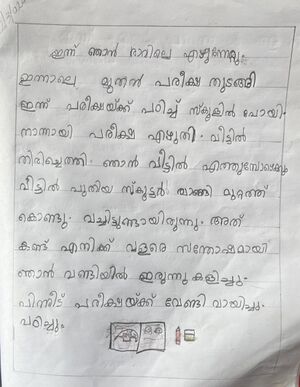 ഇന്ന് ഞാൻ രാവിലെ എഴുന്നേറ്റു.
ഇന്നാലെ മുതൽ പരീക്ഷ തുടങ്ങി
ഇന്ന് പരീക്ഷയ്ക്ക് പഠിച്ച് സ്കൂളിൽ പോയി.
നന്നായി പരീക്ഷ എഴുതി. വീട്ടിൽ
തിരിച്ചെത്തി. ഞാൻ വീട്ടിൽ
വീട്ടിൽ പുതിയ സ്കൂട്ടർ വാങ്ങി മുറ്റത്ത്
കൊണ്ടു വച്ചിട്ടുണ്ടായിരുന്നു. അത്
കണ്ട് എനിക്ക് വളരെ സന്തോഷമായി
ഞാൻ വണ്ടിയിൽ ഇരുന്നു കളിച്ചു.
പിന്നീട് പരീക്ഷയ്ക്ക് വേണ്ടി വായിച്ചു.
പഠിച്ചു.